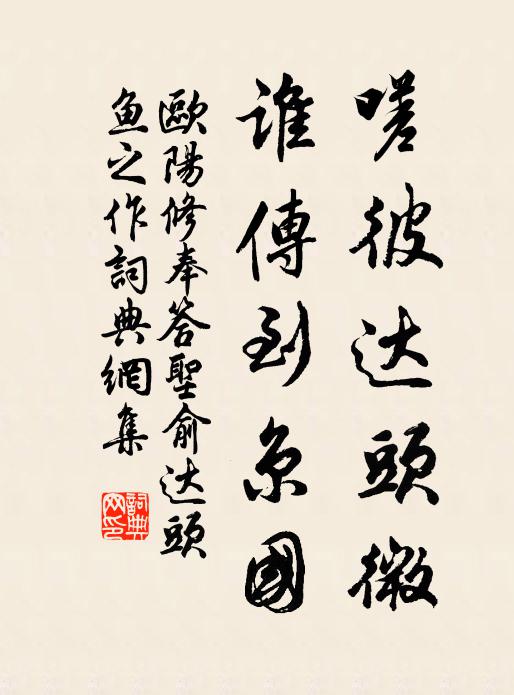 嗟彼达頭微
誰傳到京國
歐陽修奉答聖俞达頭
鱼之作詞典網集
詞典网印